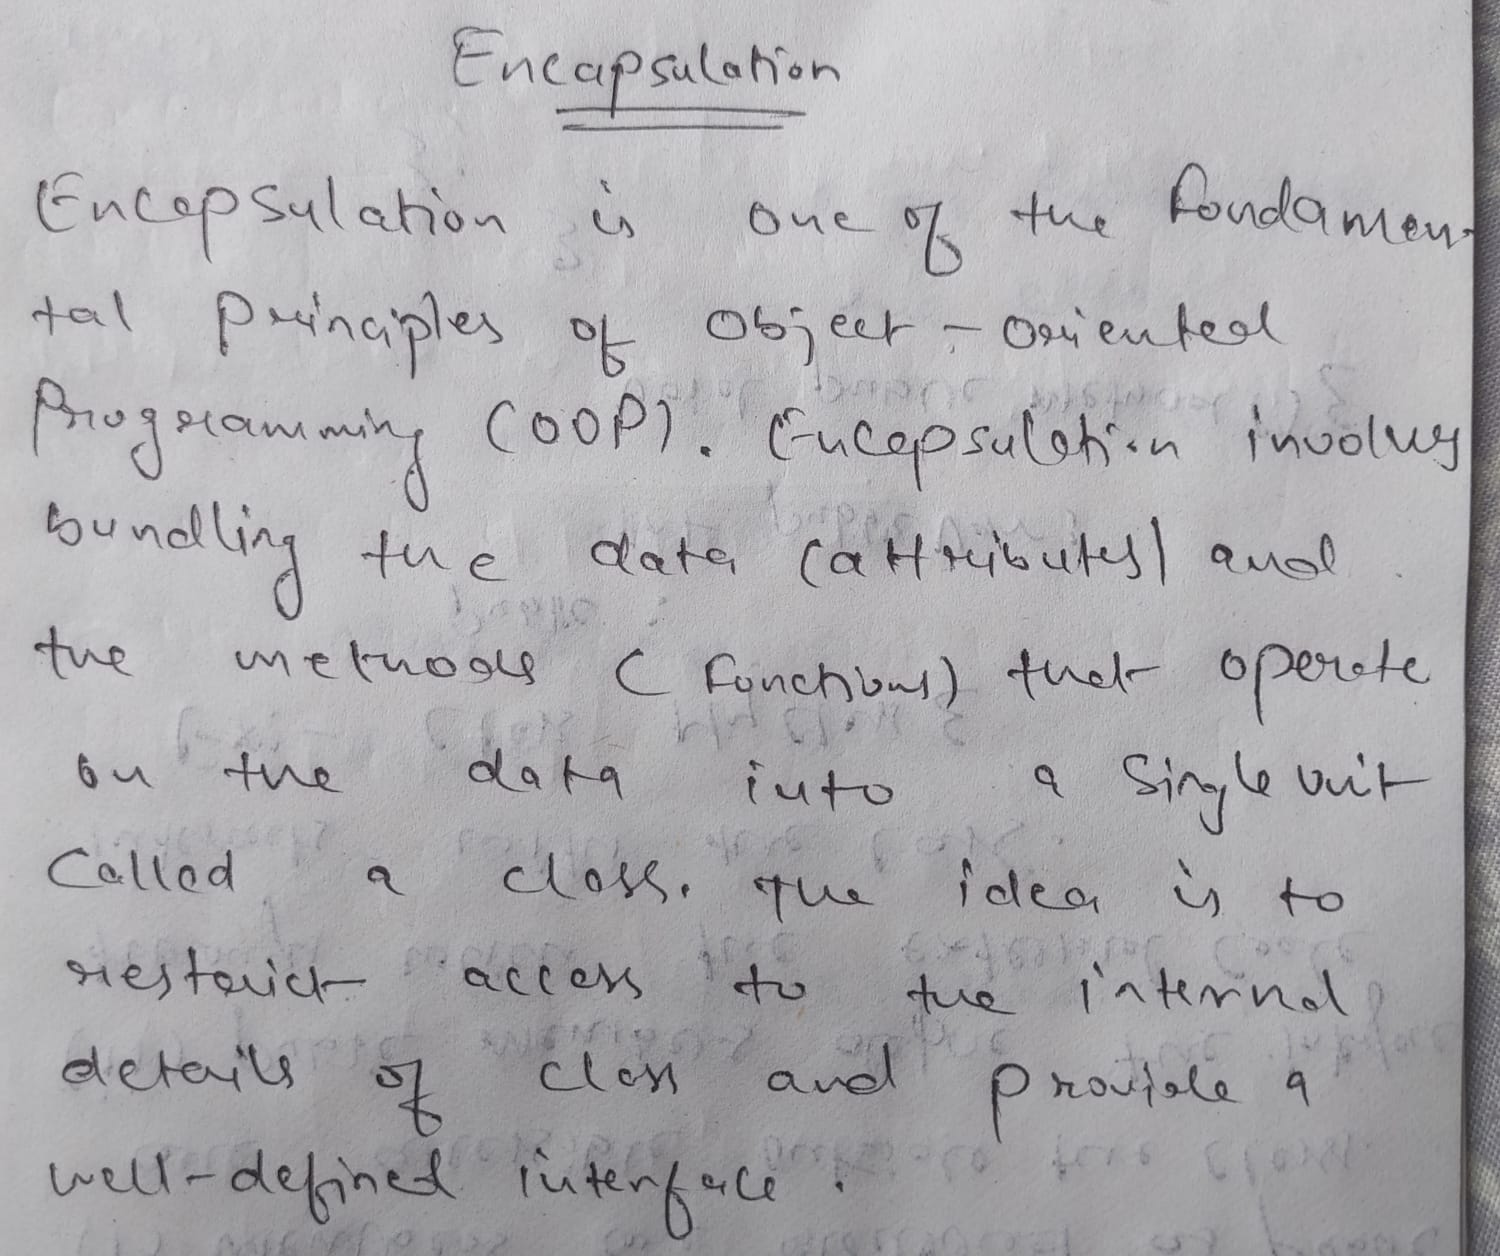 Encapsulation
Encapsulation is one of the fondamen-
tal principles of object-oriented
Programming (OOP). Encapsulation involves
bundling the data (attributes) and
the methods (functions) that operate
on the data into a single unit
Called a class. The idea is to
restrict access to the internal
details of class and provide a
well-defined interface.